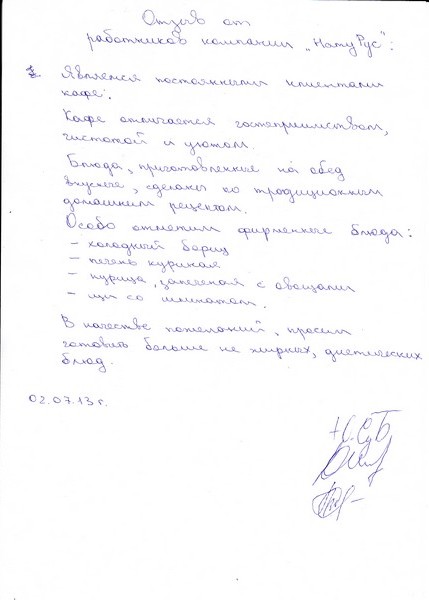 Отзыв от
работников компании „НатуРус":
Являемся постоянными клиентами
кафе.
Кафе отличается гостеприимством,
чистотой и уютом.
Блюда, приготовленные на обед
вкусные, сделаны по традиционным
домашним рецептам.
Особо отметим фирменные блюда:
- холодный борщ
- печень куриная
- курица, запеченая с овощами
- щи со шпинатом.
В качестве пожеланий, просим
готовить больше не жирных, диетических
блюд.
02.07.13 г.